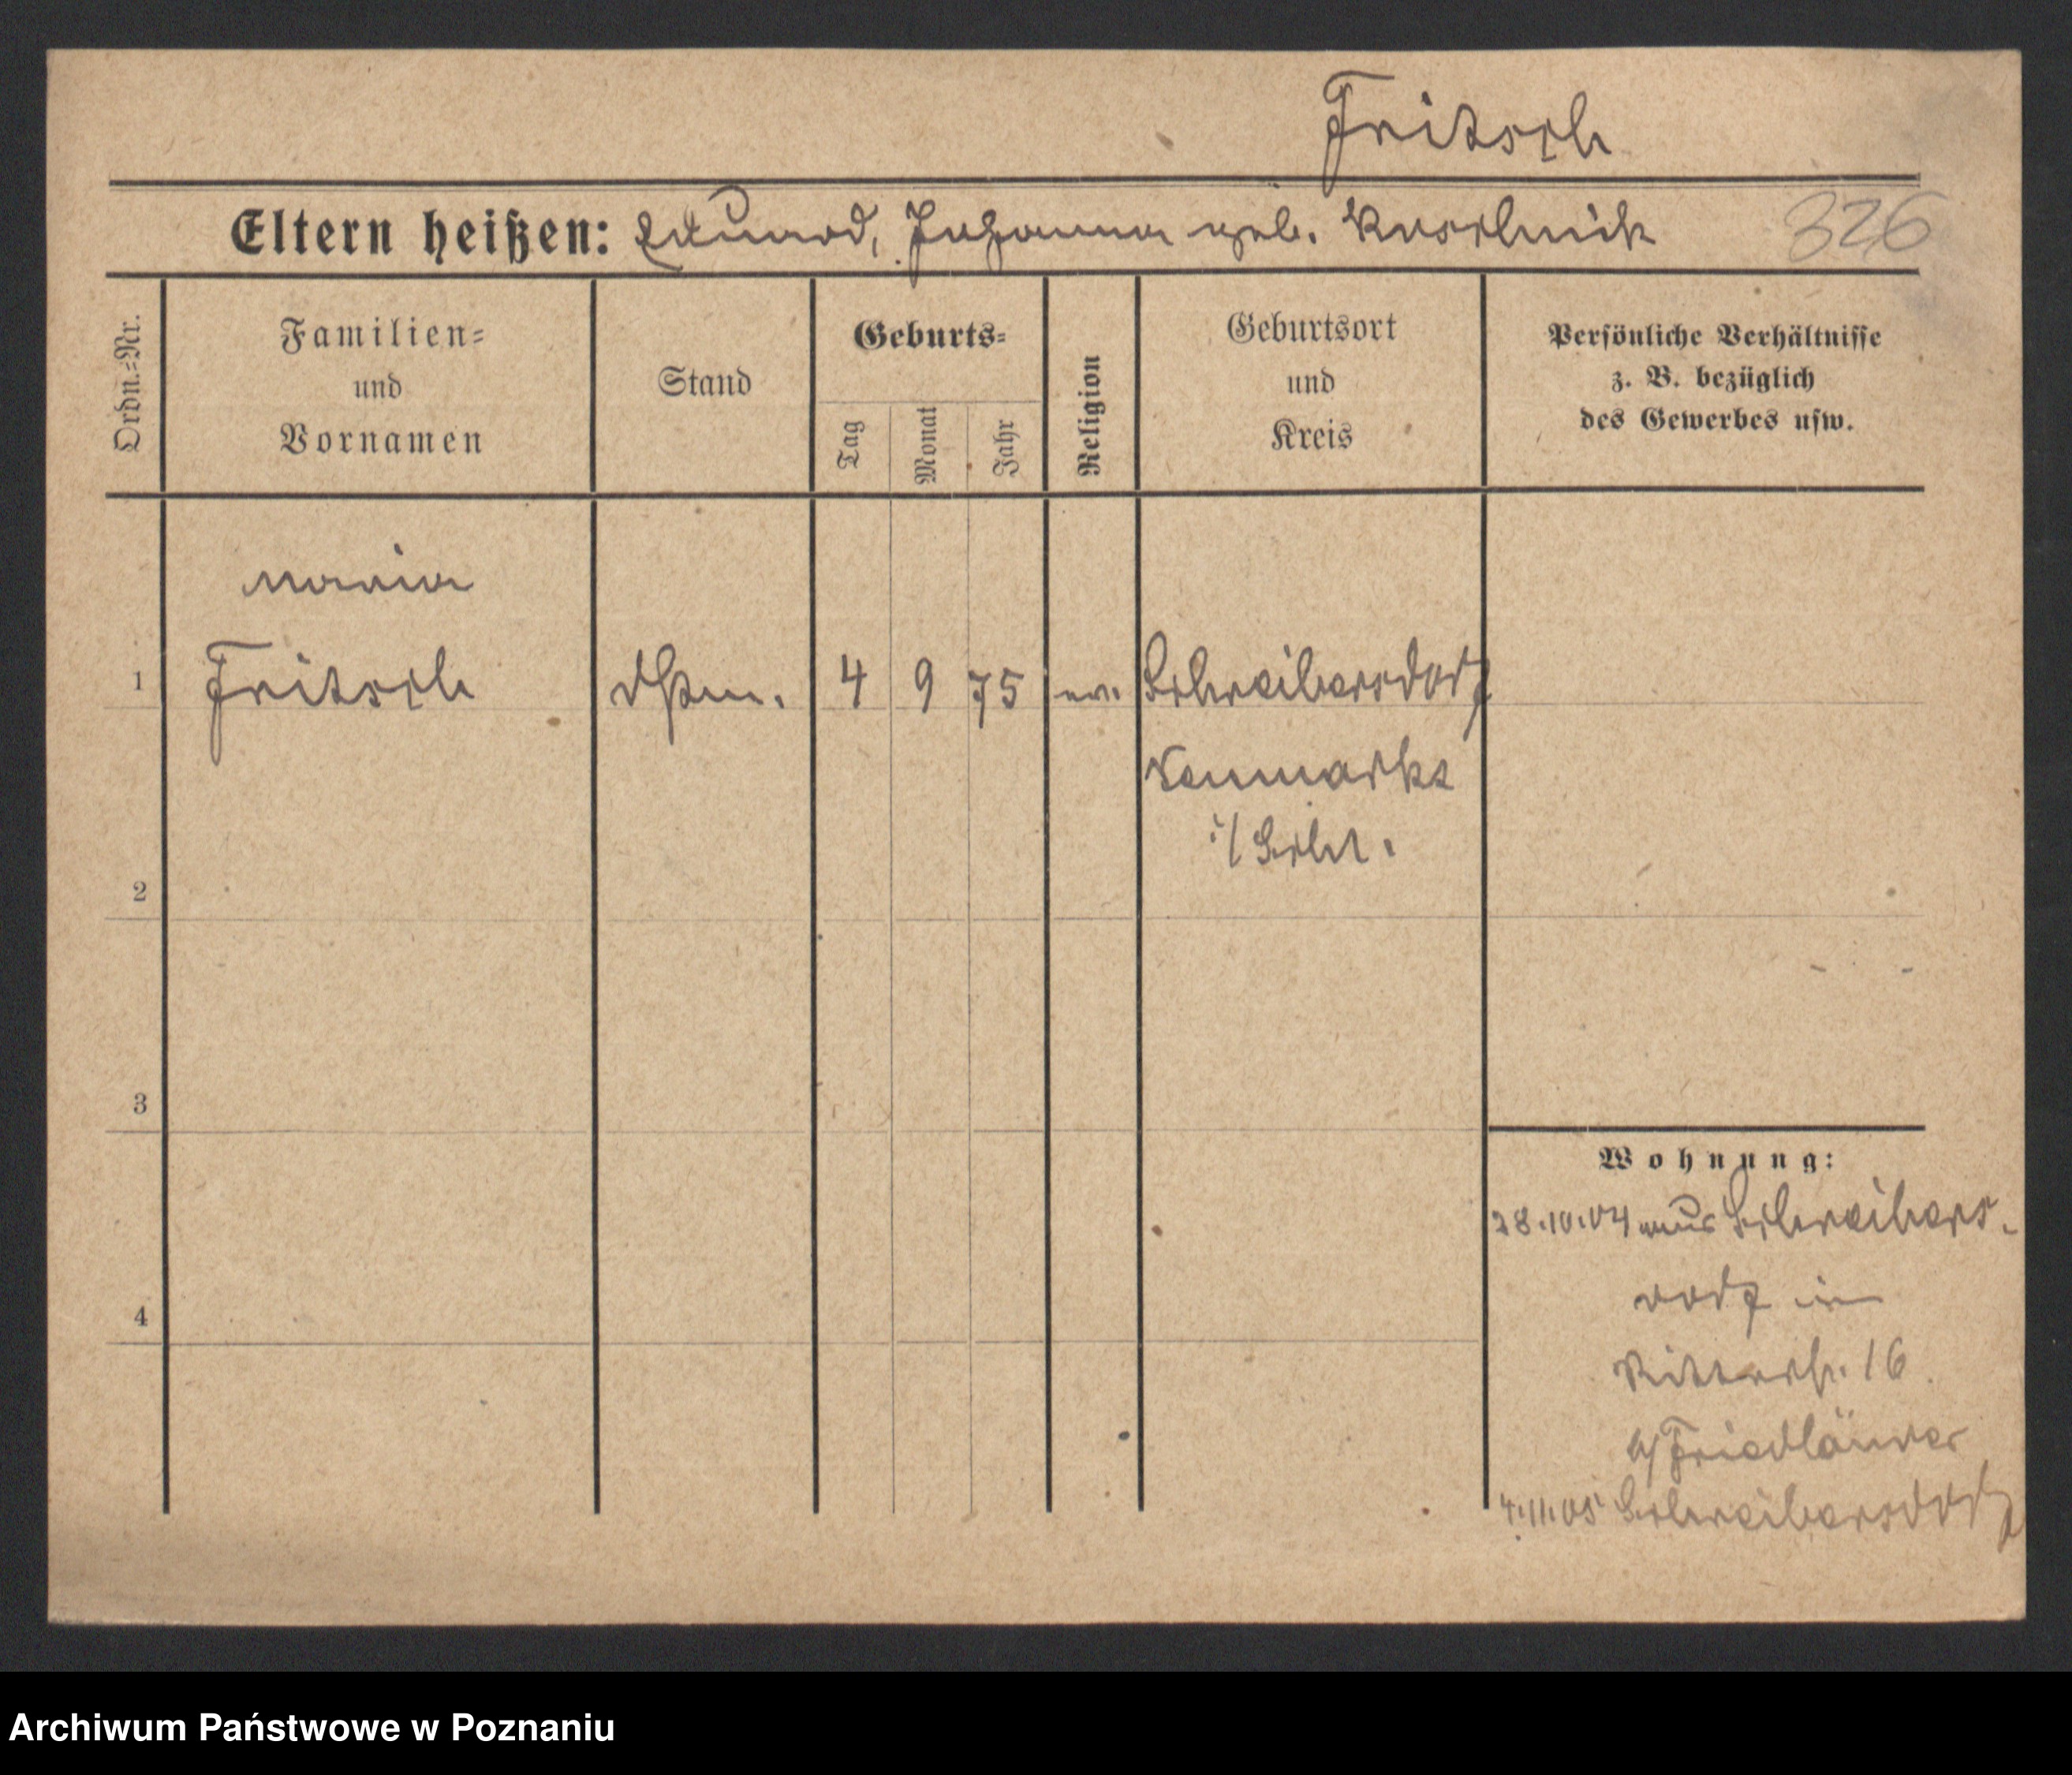 Fritsch
Eltern heißen: Eduard, Johanna geb. 326
Ordn.=Nr.
Familien=
und
Vornamen
Stand
Geburts=
Tag
Monat
Jahr
Religion
Geburtsort
und
Kreis
Persönliche Verhältnisse
z. B. bezüglich
des Gewerbes usw.
Maria
1 Fritsch 4 9 75 ev. Schreibersdorf
Neumarkt
i/Schl.
2
3
4
Wohnung:
28.10.04 aus Schreibers-
dorf in
Ritterstr. 16
b/Friedländer
4.11.05 Schreibersdorf
Archiwum Państwowe w Poznaniu